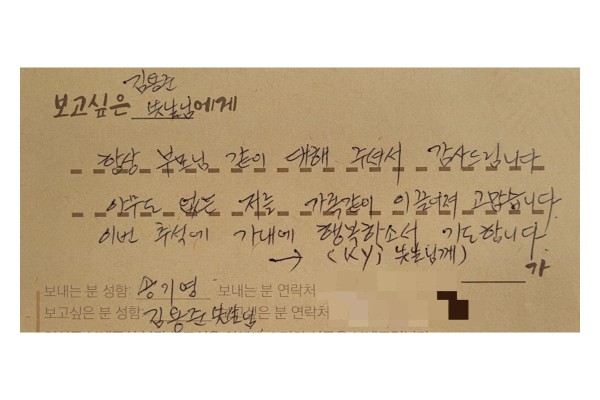 김용준
보고싶은 先生님에게
항상 부모님 같이 대해 주셔서 감사드립니다
아무도 없는 저를 가족같이 이끌어줘 고맙습니다.
이번 추석에 가내에 행복하소서 기도합니다.
→ (KYJ 先生님께)
가
보내는 분 성함: 송기영 보내는 분 연락처
보고싶은 분 성함: 김용준 先生님 은 분 연락처